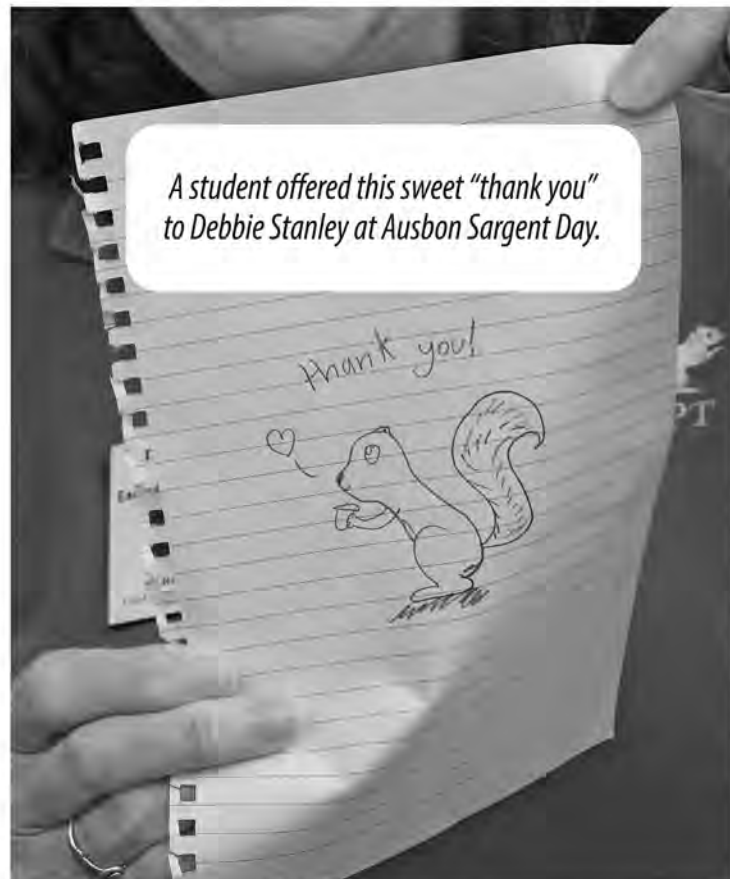 A student offered this sweet “thank you”
to Debbie Stanley at Ausbon Sargent Day.
thank you!
PT